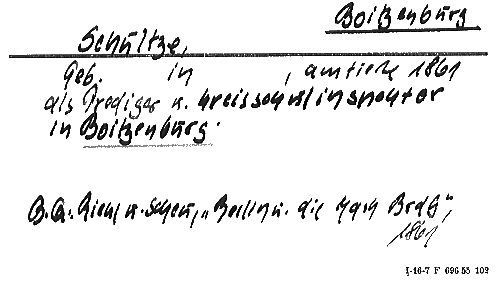 Boitzenburg
Schultze,
Geb. in , amtierte 1861
als Prediger u. Kreisschulinspektor
in Boitzenburg.
B.Q. Riehl u. Scheu, „Berlin u. die Mark Brdbg",
1861
I-16-7 F 696 55 102